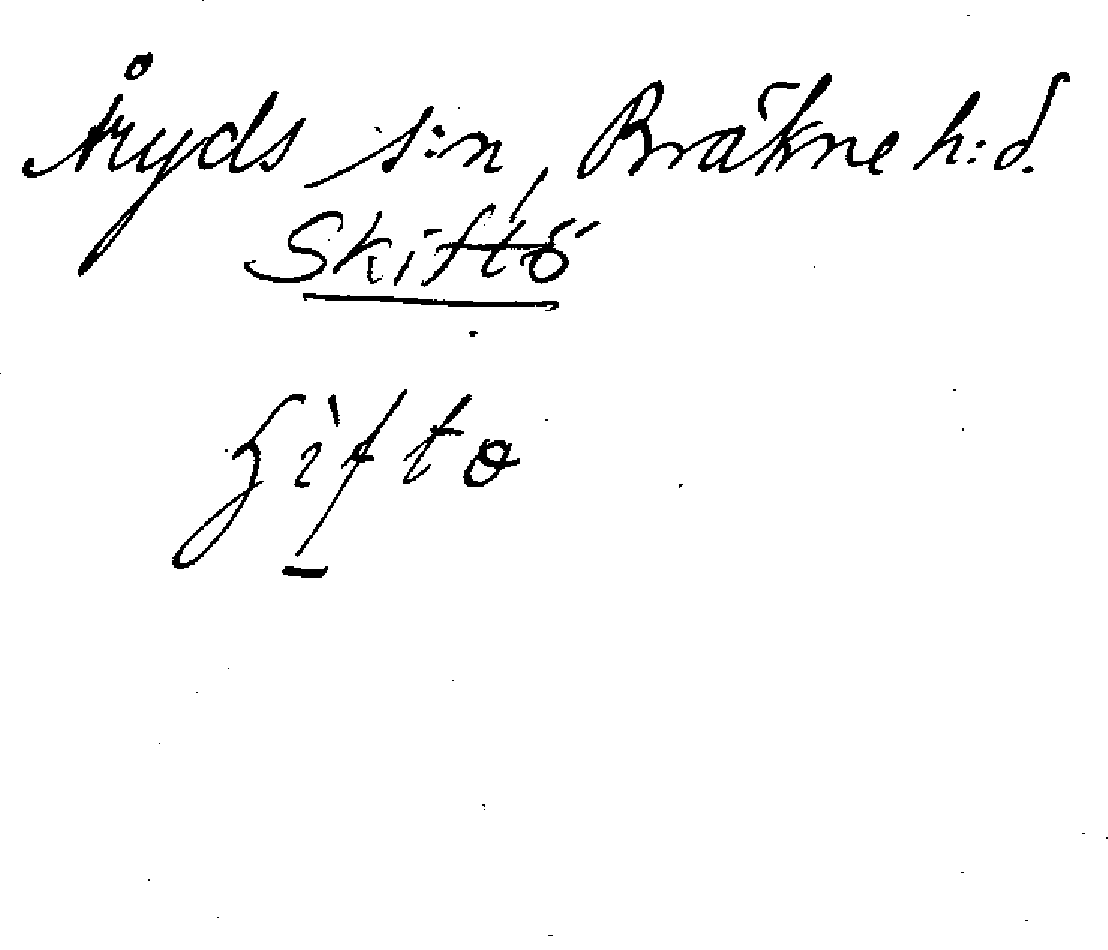 Åryds s:n, Bräkne h:d.
Skiftö
ʃìftɵ